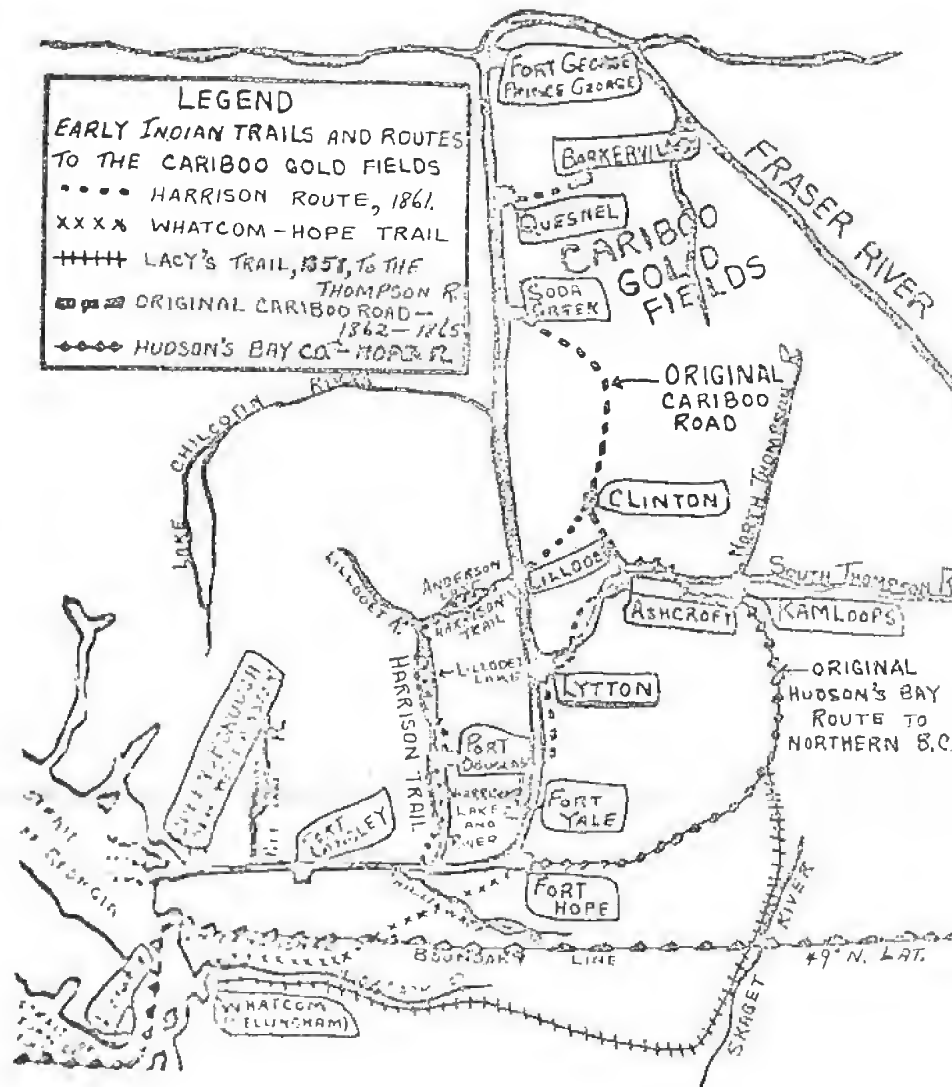 FORT GEORGE
PRINCE GEORGE
LEGEND
EARLY INDIAN TRAILS AND ROUTES
TO THE CARIBOO GOLD FIELDS
HARRISON ROUTE, 1861.
WHATCOM - HOPE TRAIL
LACY'S TRAIL, 1858, TO THE
THOMPSON R.
ORIGINAL CARIBOO ROAD -
1862 - 1865
HUDSON'S BAY CO.
BARKERVILLE
FRASER RIVER
QUESNEL
CARIBOO
GOLD
FIELDS
SODA
CREEK
ORIGINAL
CARIBOO
ROAD
CHILCOTIN
RIVER
LAKE
CLINTON
NORTH THOMPSON R
LILLOOET
LILLOOET R.
ANDERSON
LAKE
HARRISON
TRAIL
SOUTH THOMPSON R
ASHCROFT
KAMLOOPS
HARRISON TRAIL
LILLOOET
LAKE
LYTTON
ORIGINAL
HUDSON'S BAY
ROUTE TO
NORTHERN B.C.
PORT
DOUGLAS
HARRISON
LAKE
AND
RIVER
FORT
YALE
FORT
LANGLEY
STRAIT
OF GEORGIA
FORT
HOPE
BOUNDARY
LINE
49° N. LAT.
SKAGET RIVER
WHATCOM
(BELLINGHAM)